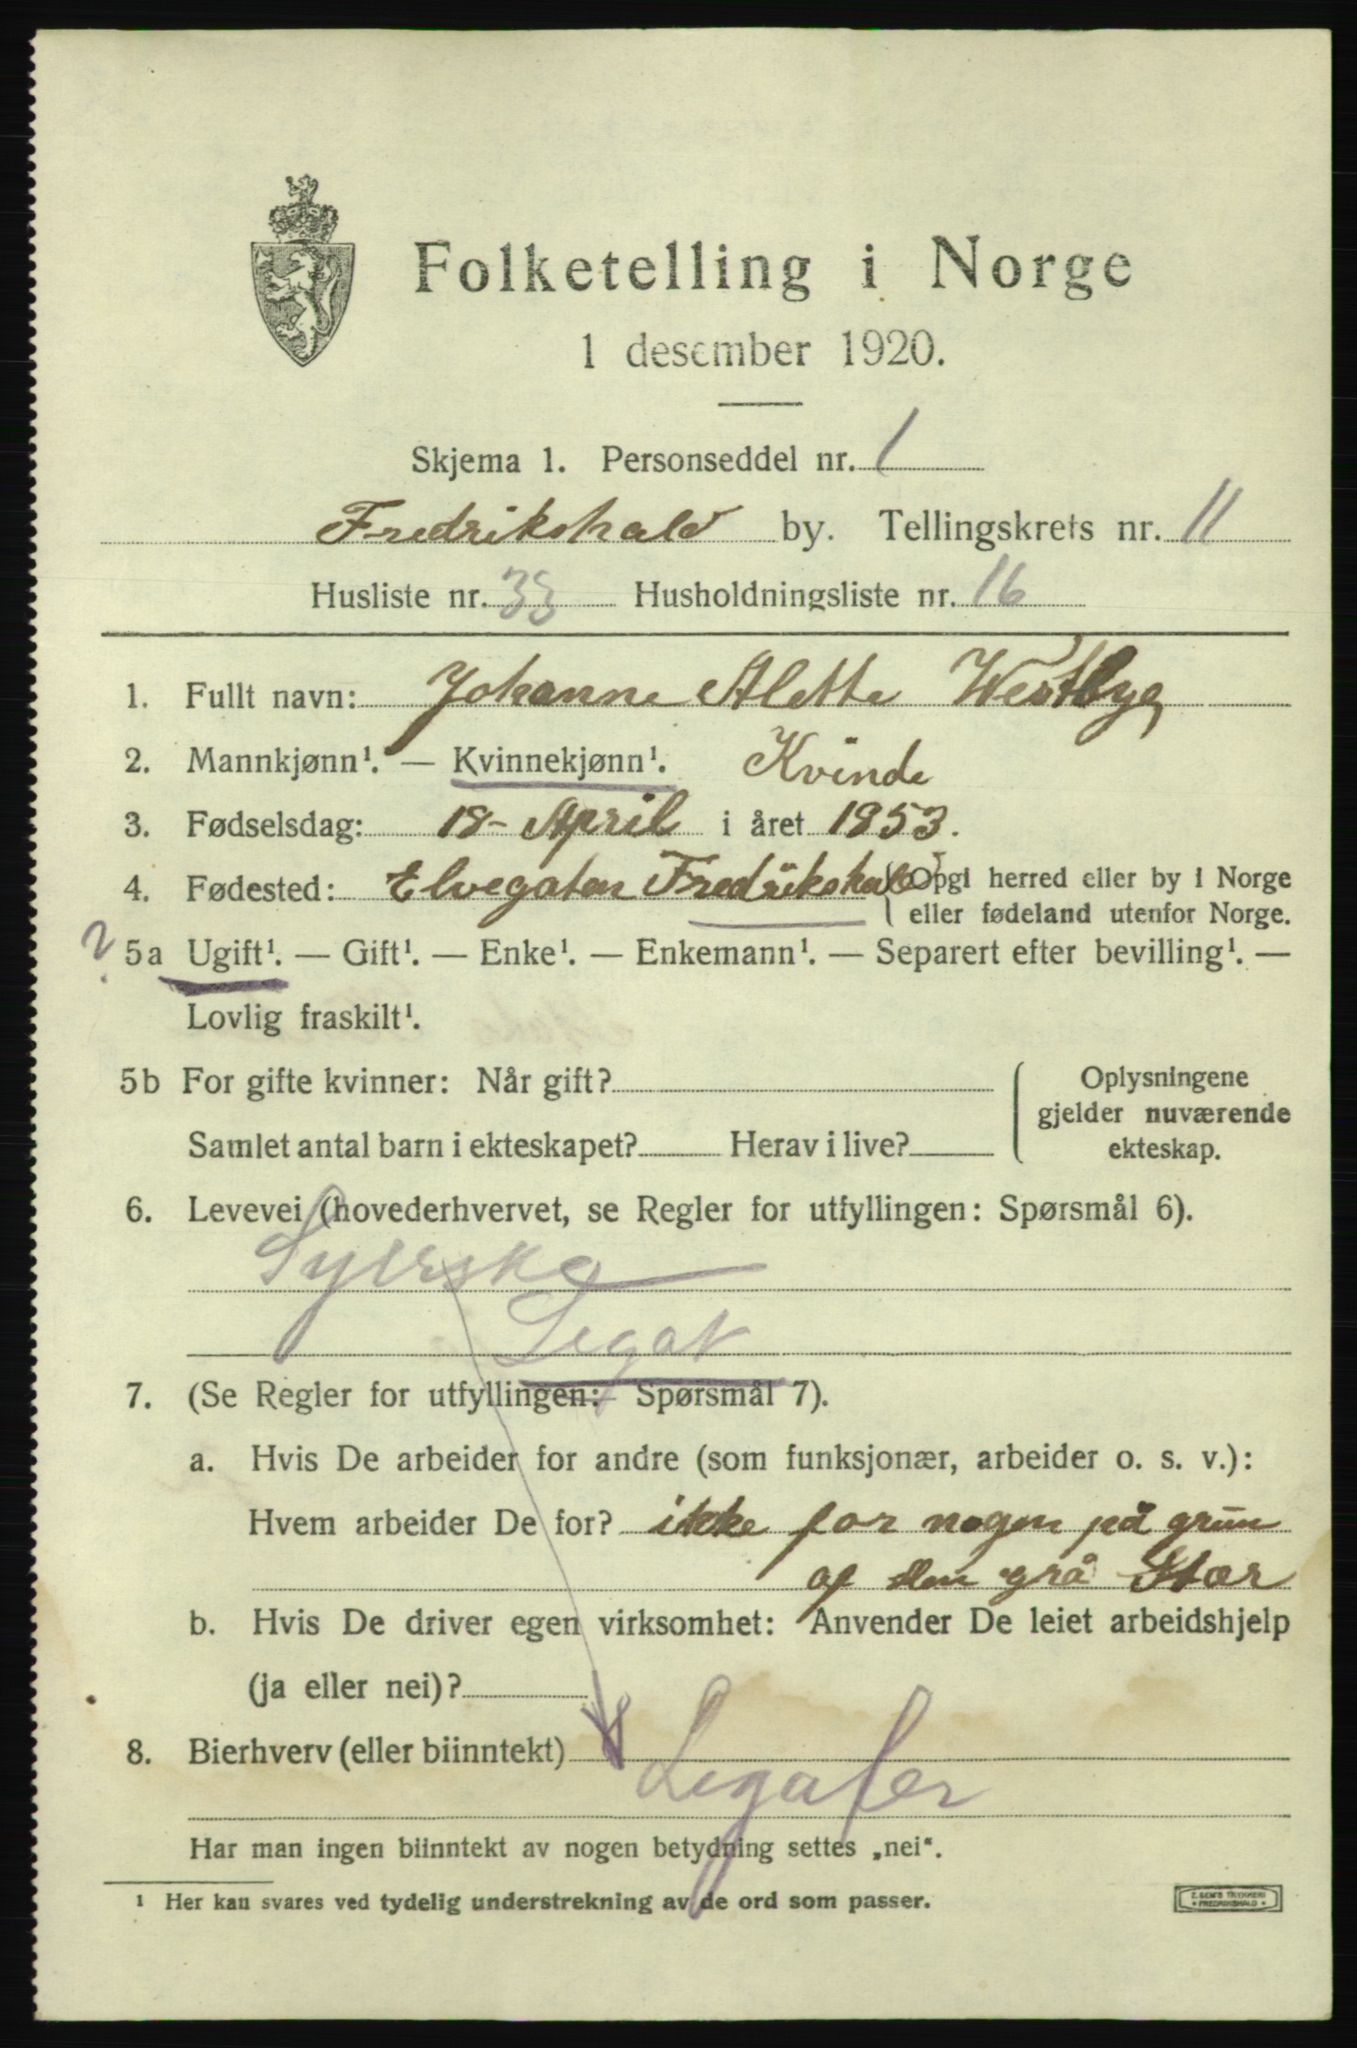 Folketelling i Norge
1 desember 1920.
Skjema 1. Personseddel nr. 1
Fredrikshald by. Tellingskrets nr. 11
Husliste nr. 33 Husholdningsliste nr. 16
1. Fullt navn: Johanne Alette Westbye
2. Mannkjønn¹. — Kvinnekjønn¹. Kvinde
3. Fødselsdag: 18- April i året 1853.
4. Fødested: Elvegaten Fredrikshald (Opgi herred eller by i Norge
eller fødeland utenfor Norge.
? 5a Ugift¹. — Gift¹. — Enke¹. — Enkemann¹. — Separert efter bevilling¹. —
Lovlig fraskilt¹.
5b For gifte kvinner: Når gift? Oplysningene
gjelder nuværende
Samlet antal barn i ekteskapet? Herav i live? ekteskap.
6. Levevei (hovederhvervet, se Regler for utfyllingen: Spørsmål 6).
Syerske
Legat
7. (Se Regler for utfyllingen: Spørsmål 7).
a. Hvis De arbeider for andre (som funksjonær, arbeider o. s. v.):
Hvem arbeider De for? ikke for nogen på grun
af den grå Stær
b. Hvis De driver egen virksomhet: Anvender De leiet arbeidshjelp
(ja eller nei)?
8. Bierhverv (eller biinntekt)
Legater
Har man ingen biinntekt av nogen betydning settes „nei“.
¹ Her kan svares ved tydelig understrekning av de ord som passer.
Z. SEM'S TRYKKERI
• FREDRIKSHALD •